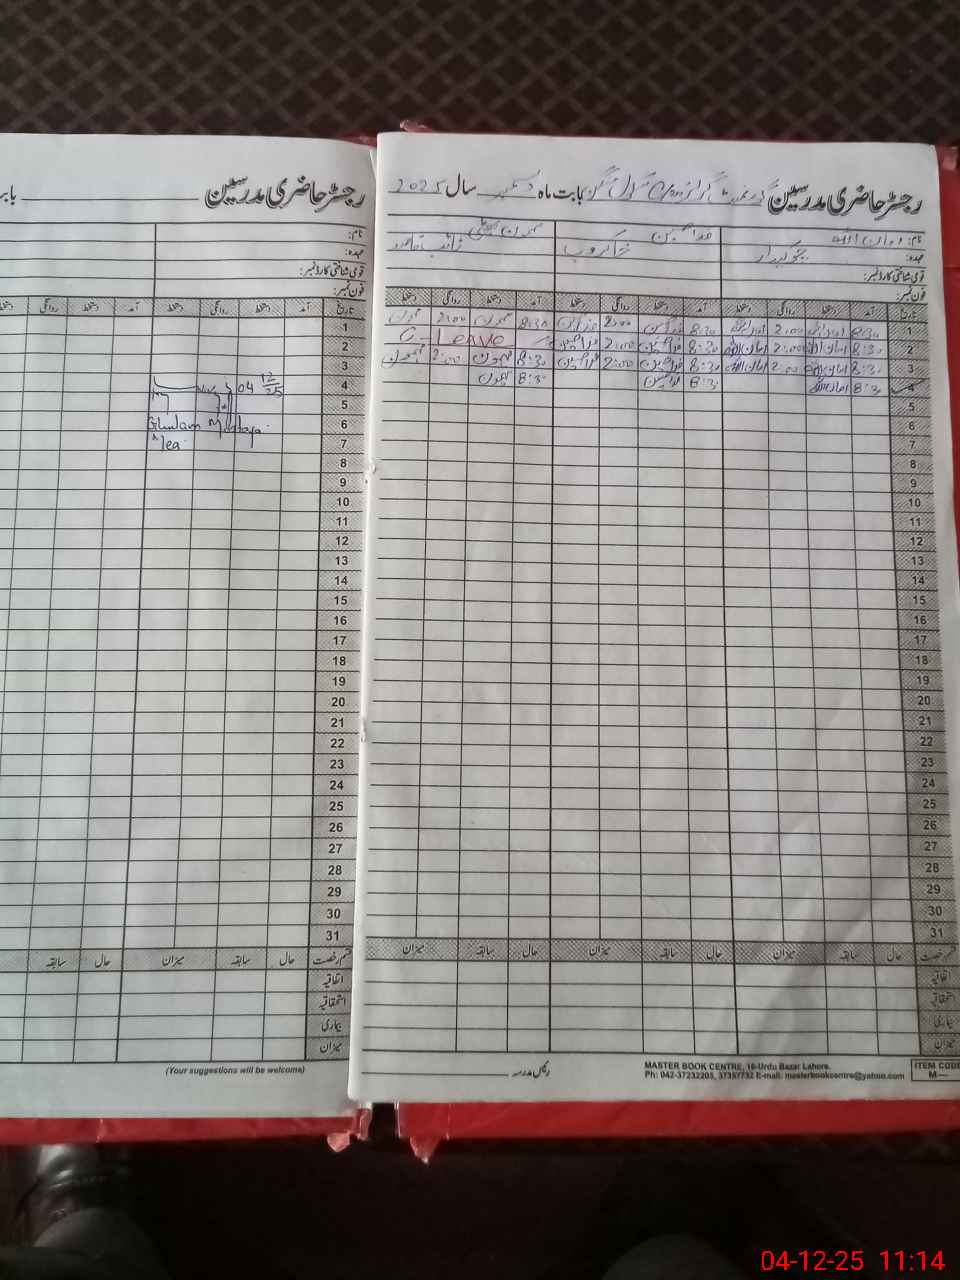 رجسٹر حاضری مدرسین
بابت
نام:
عہدہ:
قومی شناختی کارڈ نمبر:
فون نمبر:
تاریخ آمد دستخط روانگی دستخط آمد دستخط روانگی دستخط
1
2
3
4
04 12/25
5
6
Ghulam
7
Aea
8
9
10
11
12
13
14
15
16
17
18
19
20
21
22
23
24
25
26
27
28
29
30
31
قسم رخصت حال سابقہ میزان حال سابقہ
اتفاقیہ
استحقاقیہ
بیماری
میزان
(Your suggestions will be welcome)
رجسٹر حاضری مدرسین گورنمنٹ گرلز بابت ماہ دسمبر سال 2025
نام: امان اللہ
عہدہ: چوکیدار خاکروب نائب قاصد
قومی شناختی کارڈ نمبر:
فون نمبر:
تاریخ آمد دستخط روانگی دستخط آمد دستخط روانگی دستخط آمد دستخط روانگی دستخط
1 8:30 امان اللہ 2:00 امان اللہ 8:30 2:00 8:30 2:00
2 8:30 امان اللہ 2:00 امان اللہ 8:30 2:00 C-Leave
3 8:30 امان اللہ 2:00 امان اللہ 8:30 2:00 8:30 2:00
4 8:30 امان اللہ 8:30 8:30
5
6
7
8
9
10
11
12
13
14
15
16
17
18
19
20
21
22
23
24
25
26
27
28
29
30
31
قسم رخصت حال سابقہ میزان حال سابقہ میزان حال سابقہ میزان
اتفاقیہ
استحقاقیہ
بیماری
میزان
رئیس مدرسہ
MASTER BOOK CENTRE, 16-Urdu Bazar Lahore.
Ph: 042-37232205, 37357732 E-mail: masterbookcentre@yahoo.com
ITEM CODE
M—
04-12-25 11:14